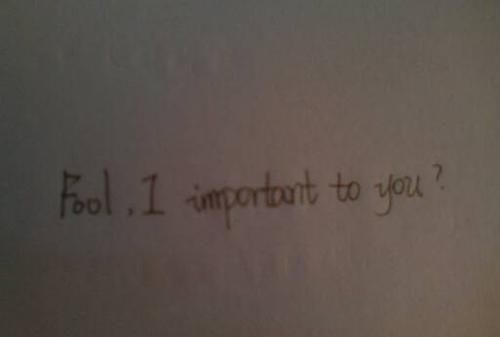 Fool, I important to you?